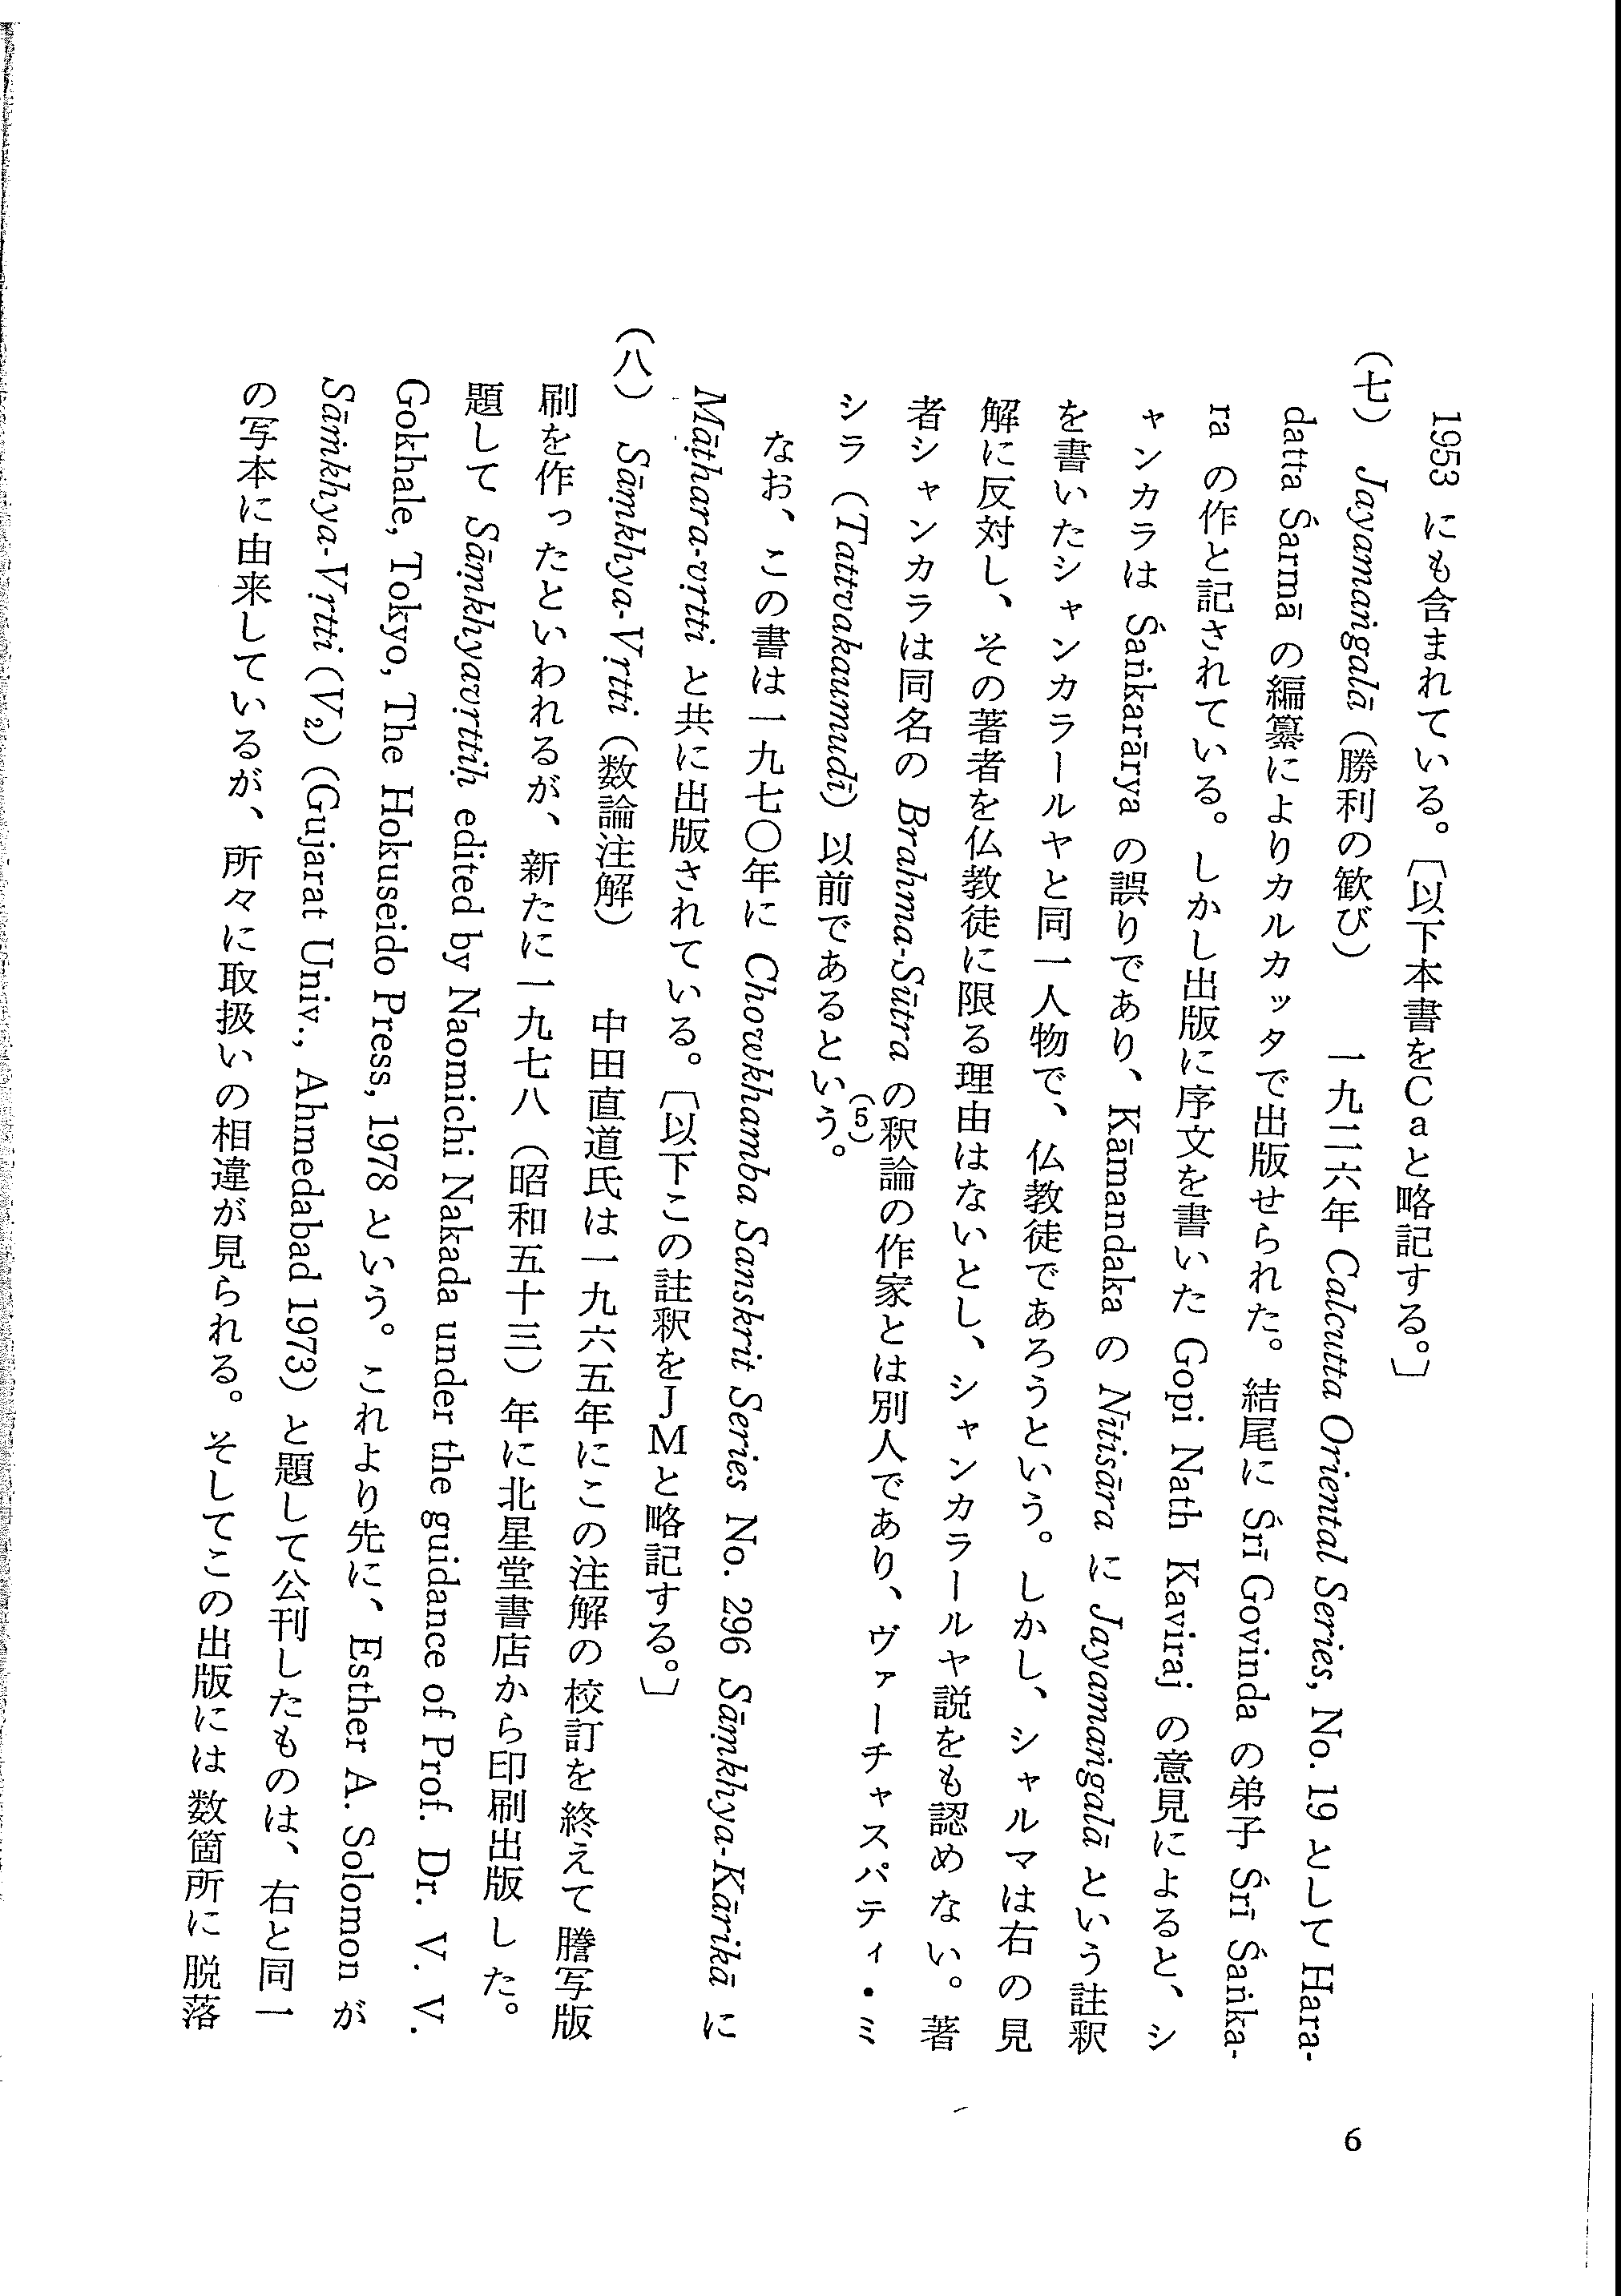 1953 にも含まれている。〔以下本書をCaと略記する。〕
(七) Jayamaṅgalā(勝利の歓び) 一九二六年 Calcutta Oriental Series, No. 19 として Hara-
datta Śarmā の編纂によりカルカッタで出版せられた。結尾に Śrī Govinda の弟子 Śrī Śaṅka-
ra の作と記されている。しかし出版に序文を書いた Gopi Nath Kaviraj の意見によると、シ
ャンカラは Śaṅkarārya の誤りであり、Kāmandaka の Nītisāra に Jayamaṅgalā という註釈
を書いたシャンカラールヤと同一人物で、仏教徒であろうという。しかし、シャルマは右の見
解に反対し、その著者を仏教徒に限る理由はないとし、シャンカラールヤ説をも認めない。著
者シャンカラは同名の Brahma-Sūtra の釈論の作家とは別人であり、ヴァーチャスパティ・ミ
シラ(Tattvakaumudī)以前であるという。(5)
なお、この書は一九七〇年に Chowkhamba Sanskrit Series No. 296 Sāṃkhya-Kārikā に
Māṭhara-vṛtti と共に出版されている。〔以下この註釈をJMと略記する。〕
(八) Sāṃkhya-Vṛtti(数論注解) 中田直道氏は一九六五年にこの注解の校訂を終えて謄写版
刷を作ったといわれるが、新たに一九七八(昭和五十三)年に北星堂書店から印刷出版した。
題して Sāṃkhyavṛttiḥ edited by Naomichi Nakada under the guidance of Prof. Dr. V. V.
Gokhale, Tokyo, The Hokuseido Press, 1978 という。これより先に、Esther A. Solomon が
Sāṁkhya-Vṛtti (V₂) (Gujarat Univ., Ahmedabad 1973) と題して公刊したものは、右と同一
の写本に由来しているが、所々に取扱いの相違が見られる。そしてこの出版には数箇所に脱落
6